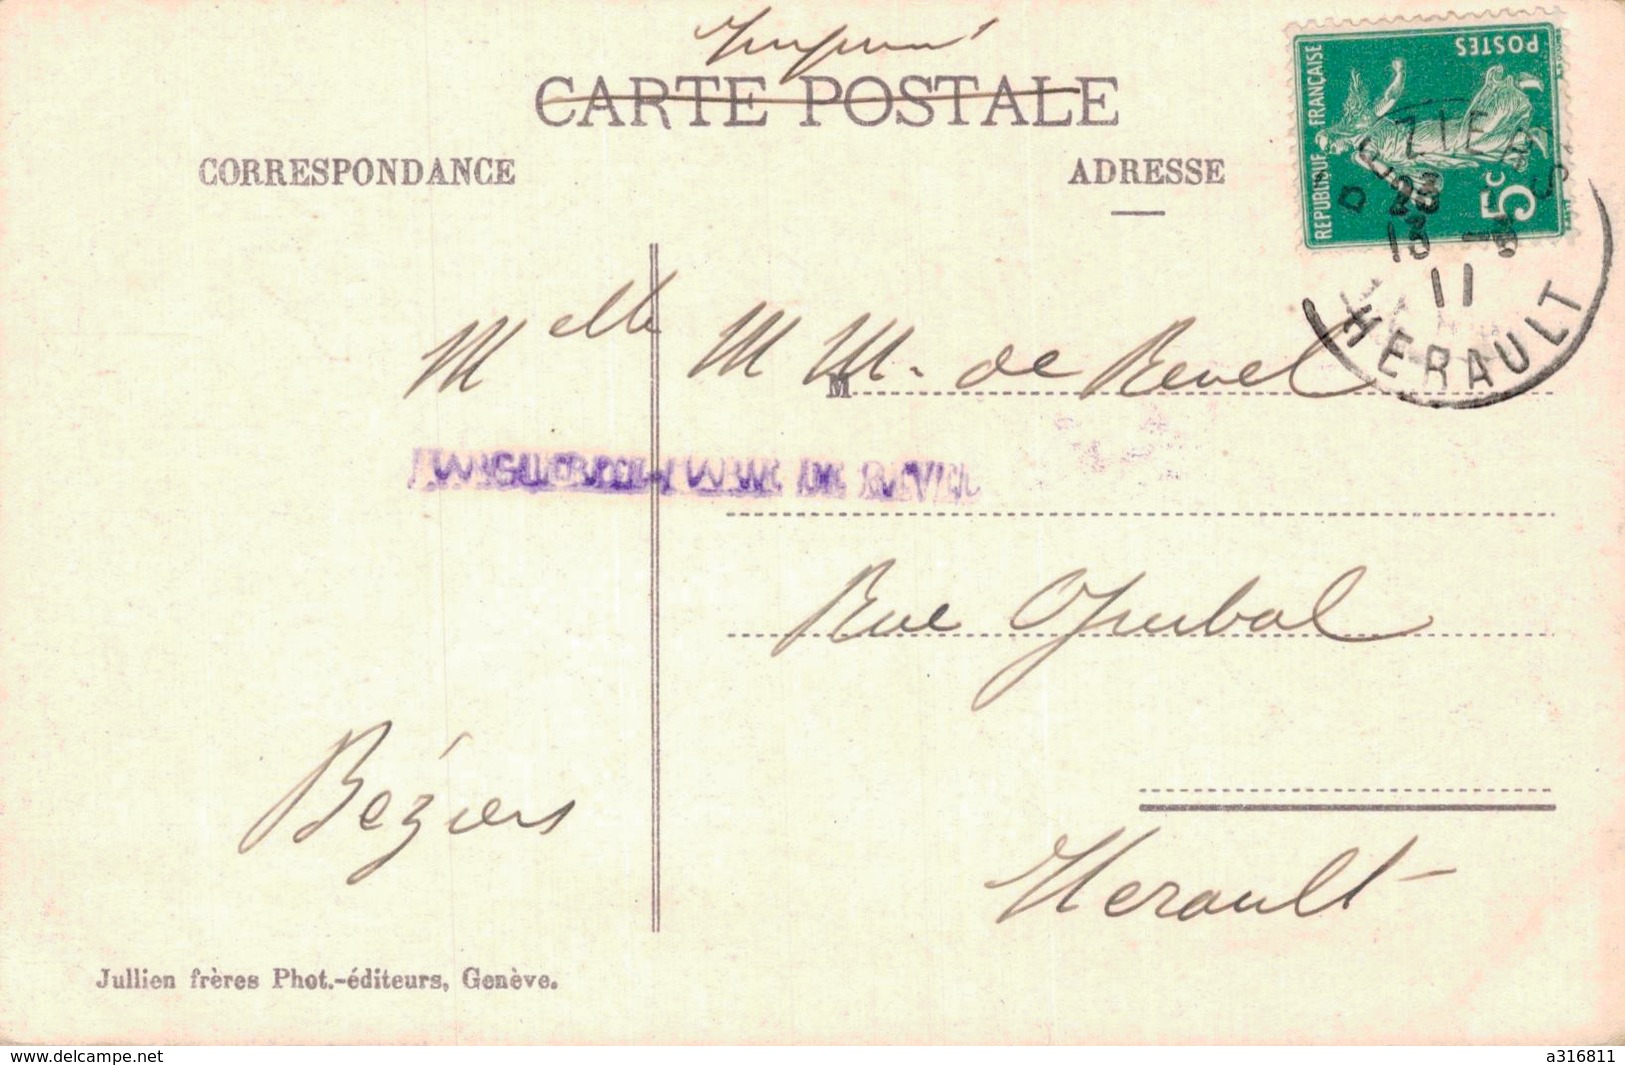 Imprimé
CARTE POSTALE
CORRESPONDANCE
ADRESSE
REPUBLIQUE FRANÇAISE
POSTES
5c
HERAULT
11
Melle M M. de Revel
M
DE REVEL
Rue
Béziers
Herault
Jullien frères Phot.-éditeurs, Genève.
www.delcampe.net
a316811